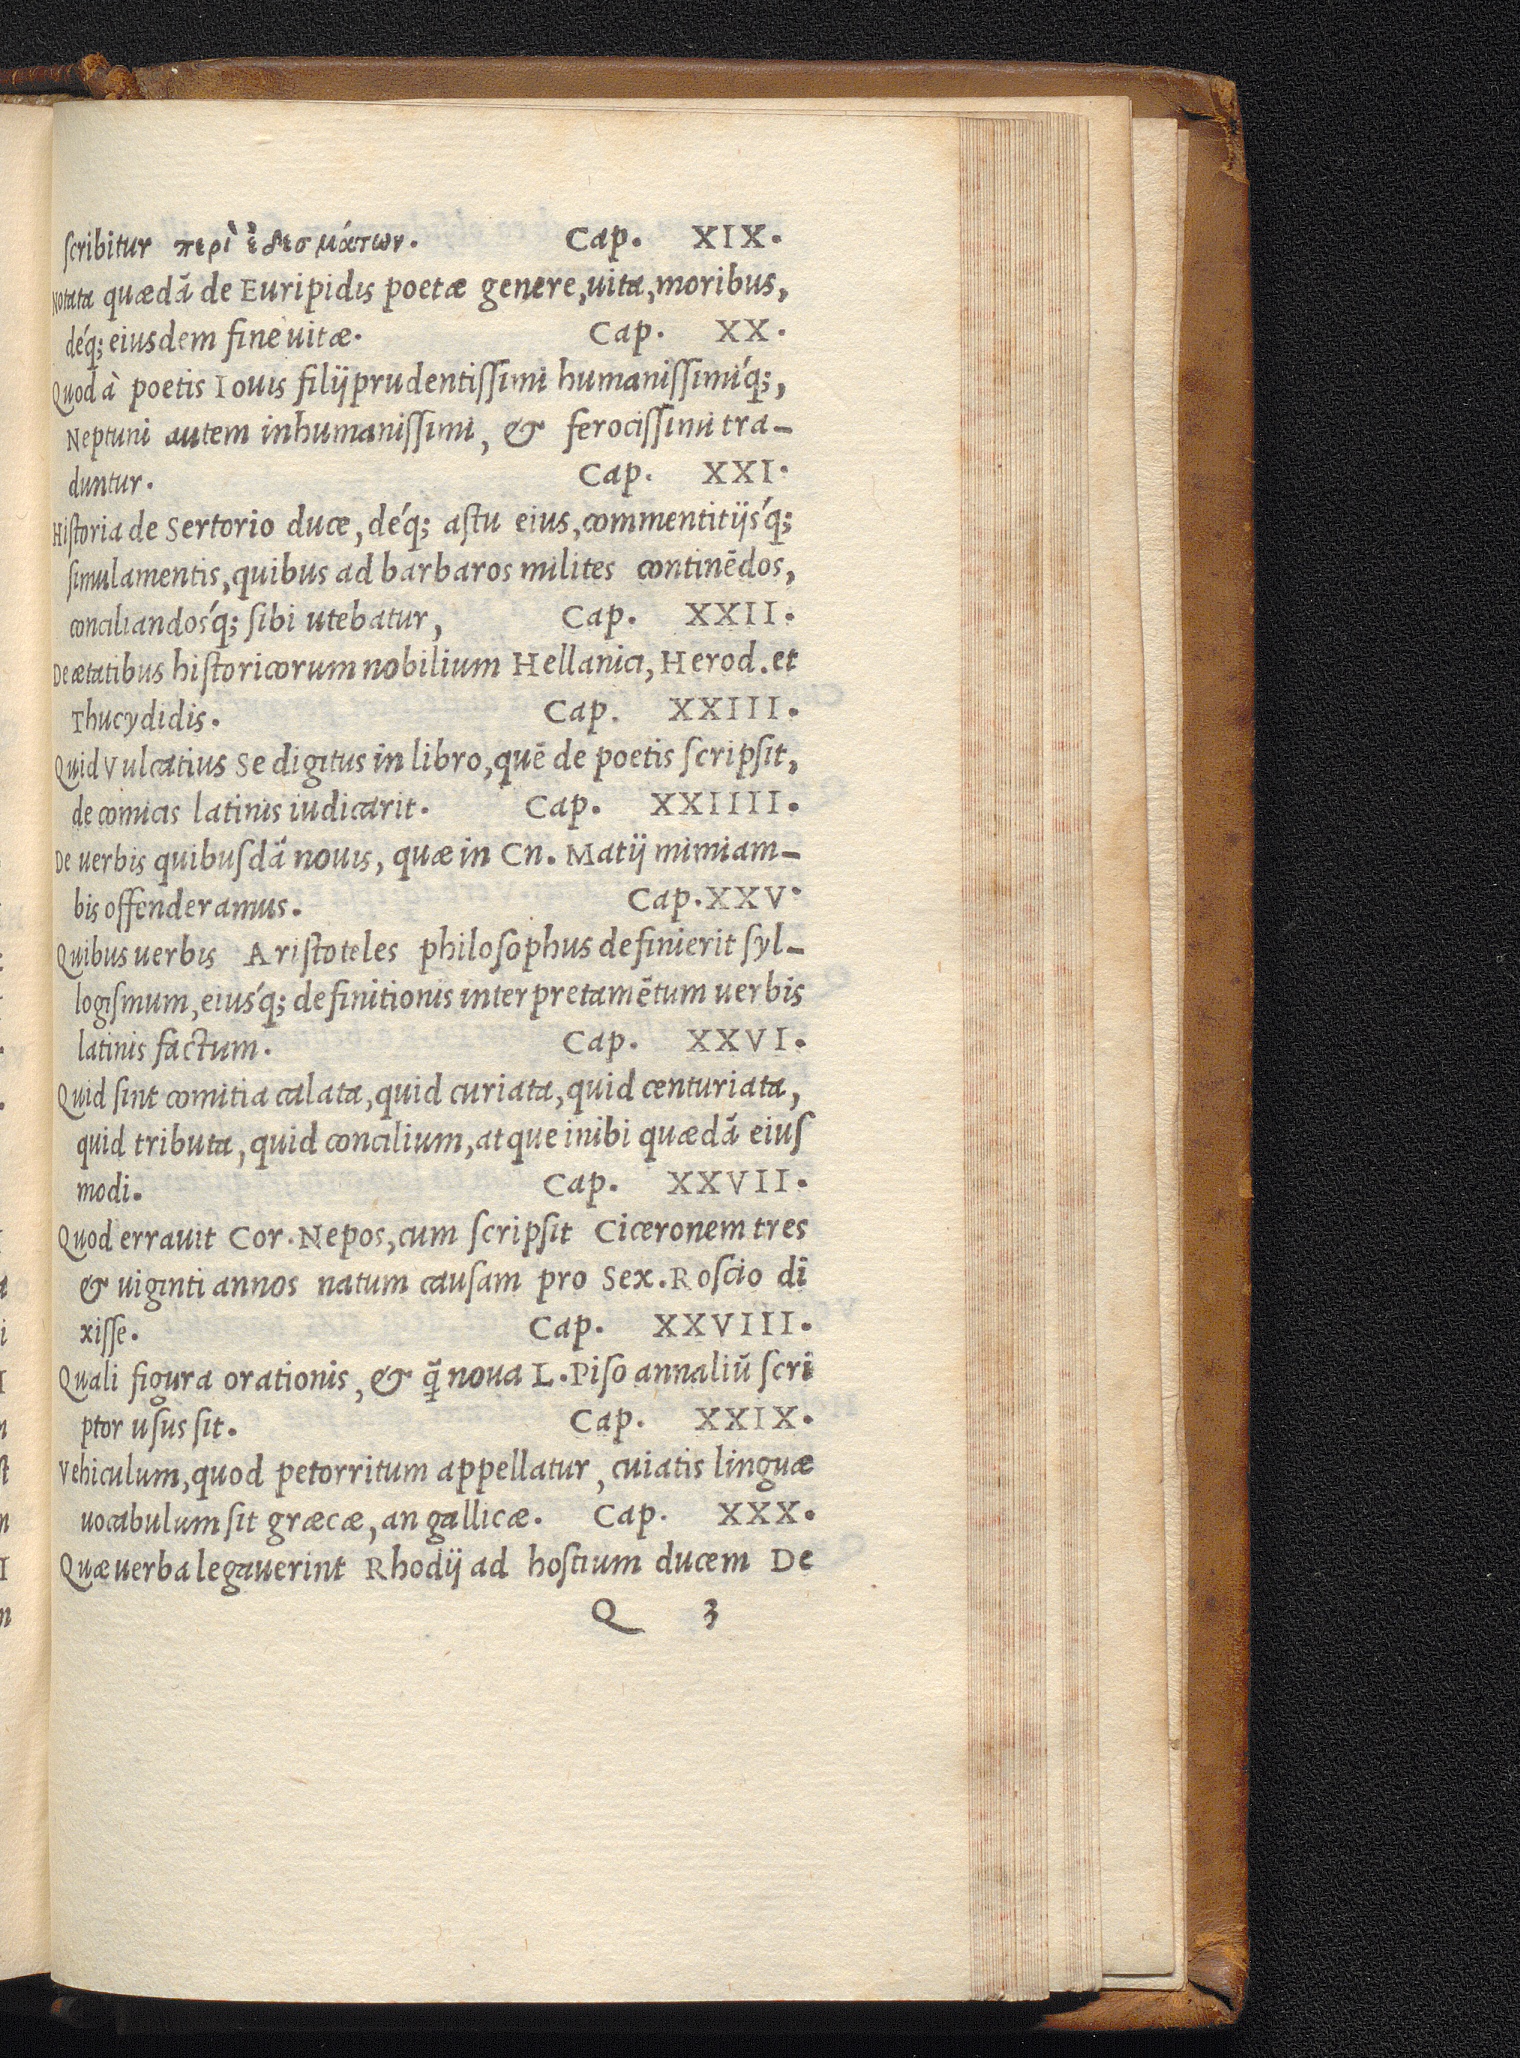 ſcribitur περὶ ἐδεσμάτων. Cap. XIX.
Notata quædā de Euripidis poetæ genere, uita, moribus,
dé́q; eiusdem fine uitæ. Cap. XX.
Quod à poetis Iouis filij prudentiſſimi humaniſſimíq;,
Neptuni autem inhumaniſſimi, & ferociſſimi tra-
duntur. Cap. XXI.
Hiſtoria de Sertorio duce, déq; aſtu eius, commentitijsq́;
ſimulamentis, quibus ad barbaros milites continēdos,
conciliandosq́; ſibi utebatur, Cap. XXII.
De ætatibus hiſtoricorum nobilium Hellanici, Herod. et
Thucydidis. Cap. XXIII.
Quid Vulcatius Sedigitus in libro, quē de poetis ſcripſit,
de comicis latinis iudicarit. Cap. XXIIII.
De uerbis quibuſdā nouis, quæ in Cn. Matij mimiam-
bis offenderamus. Cap. XXV.
Quibus uerbis Ariſtoteles philoſophus definierit ſyl-
logiſmum, eiusq́; definitionis interpretamētum uerbis
latinis factum. Cap. XXVI.
Quid ſint comitia calata, quid curiata, quid centuriata,
quid tributa, quid concilium, atque inibi quædā eiuſ
modi. Cap. XXVII.
Quod errauit Cor. Nepos, cum ſcripſit Ciceronem tres
& uiginti annos natum cauſam pro Sex. Roſcio di
xiſſe. Cap. XXVIII.
Quali figura orationis, & q̄̃ noua L. Piſo annaliū ſcri
ptor uſus ſit. Cap. XXIX.
Vehiculum, quod petorritum appellatur, cuiatis linguæ
uocabulum ſit græcæ, an gallicæ. Cap. XXX.
Quæ uerba legauerint Rhodij ad hoſtium ducem De
Q 3